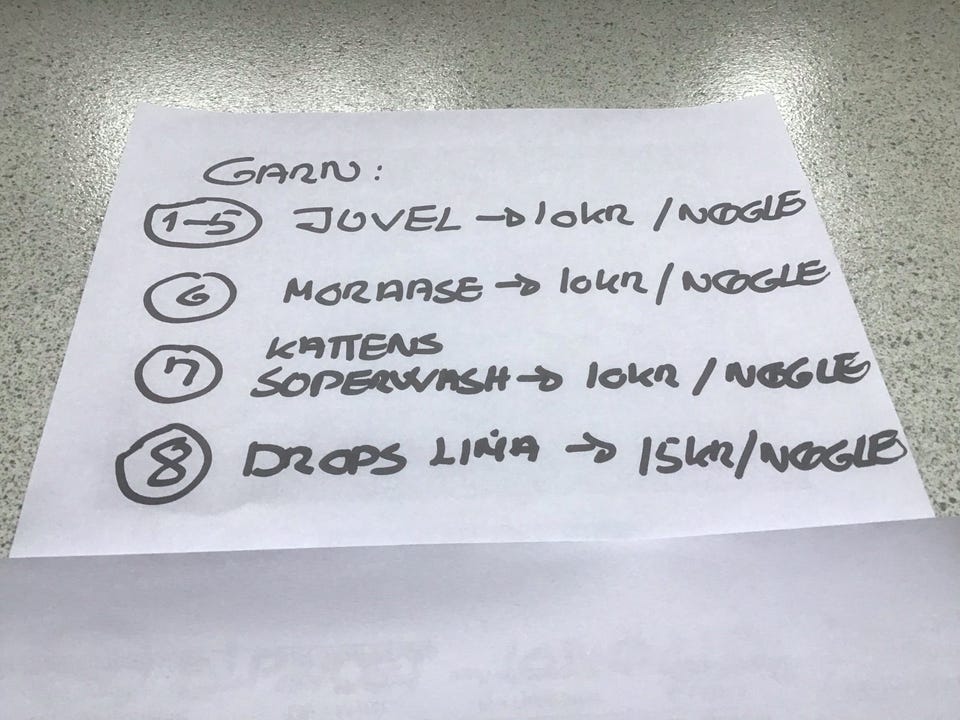 GARN:
1-5 JUVEL → 10KR / NØGLE
6 MORAASE → 10KR / NØGLE
7 KATTENS
SUPERWASH → 10KR / NØGLE
8 DROPS LIMA → 15KR/NØGLE